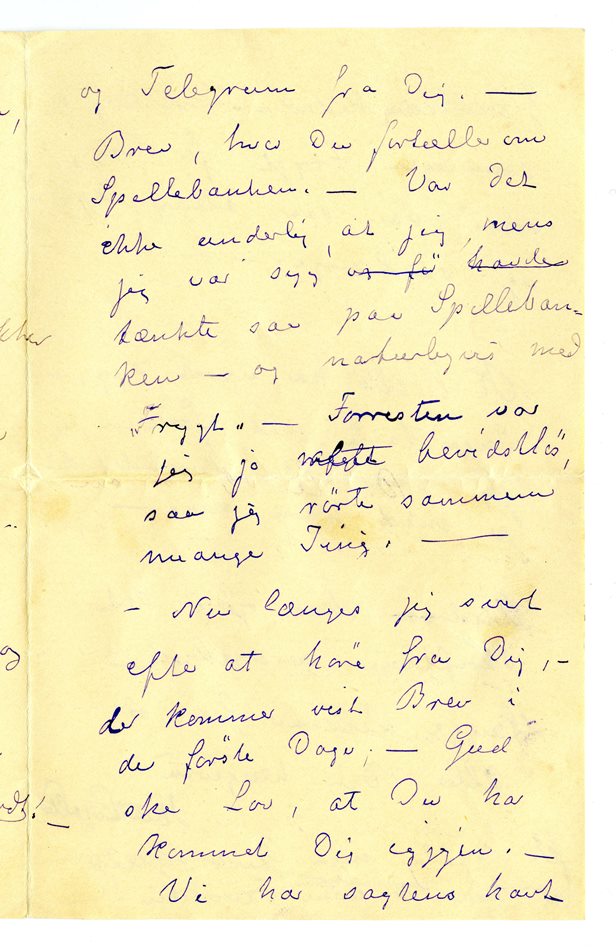 og Telegram fra Dig. —
Brev, hvor Du fortæller om
Spillebanken. — Var det
ikke underlig, at jeg, mens
jeg var syg og få havde
tænkte saa paa Spilleban=
ken — og naturligvis med
"Frygt" — Forresten var
jeg jo bevidstløs,
saa jeg rörte sammem
mange Ting. —
- Nu længes jeg svært
efte at höre fra Dig, -
der kommer vist Brev i
de förste Dage; — Gud
ske Lov, at Du har
kommet Dig igjgjen. -
Vi har sagtens havt
og